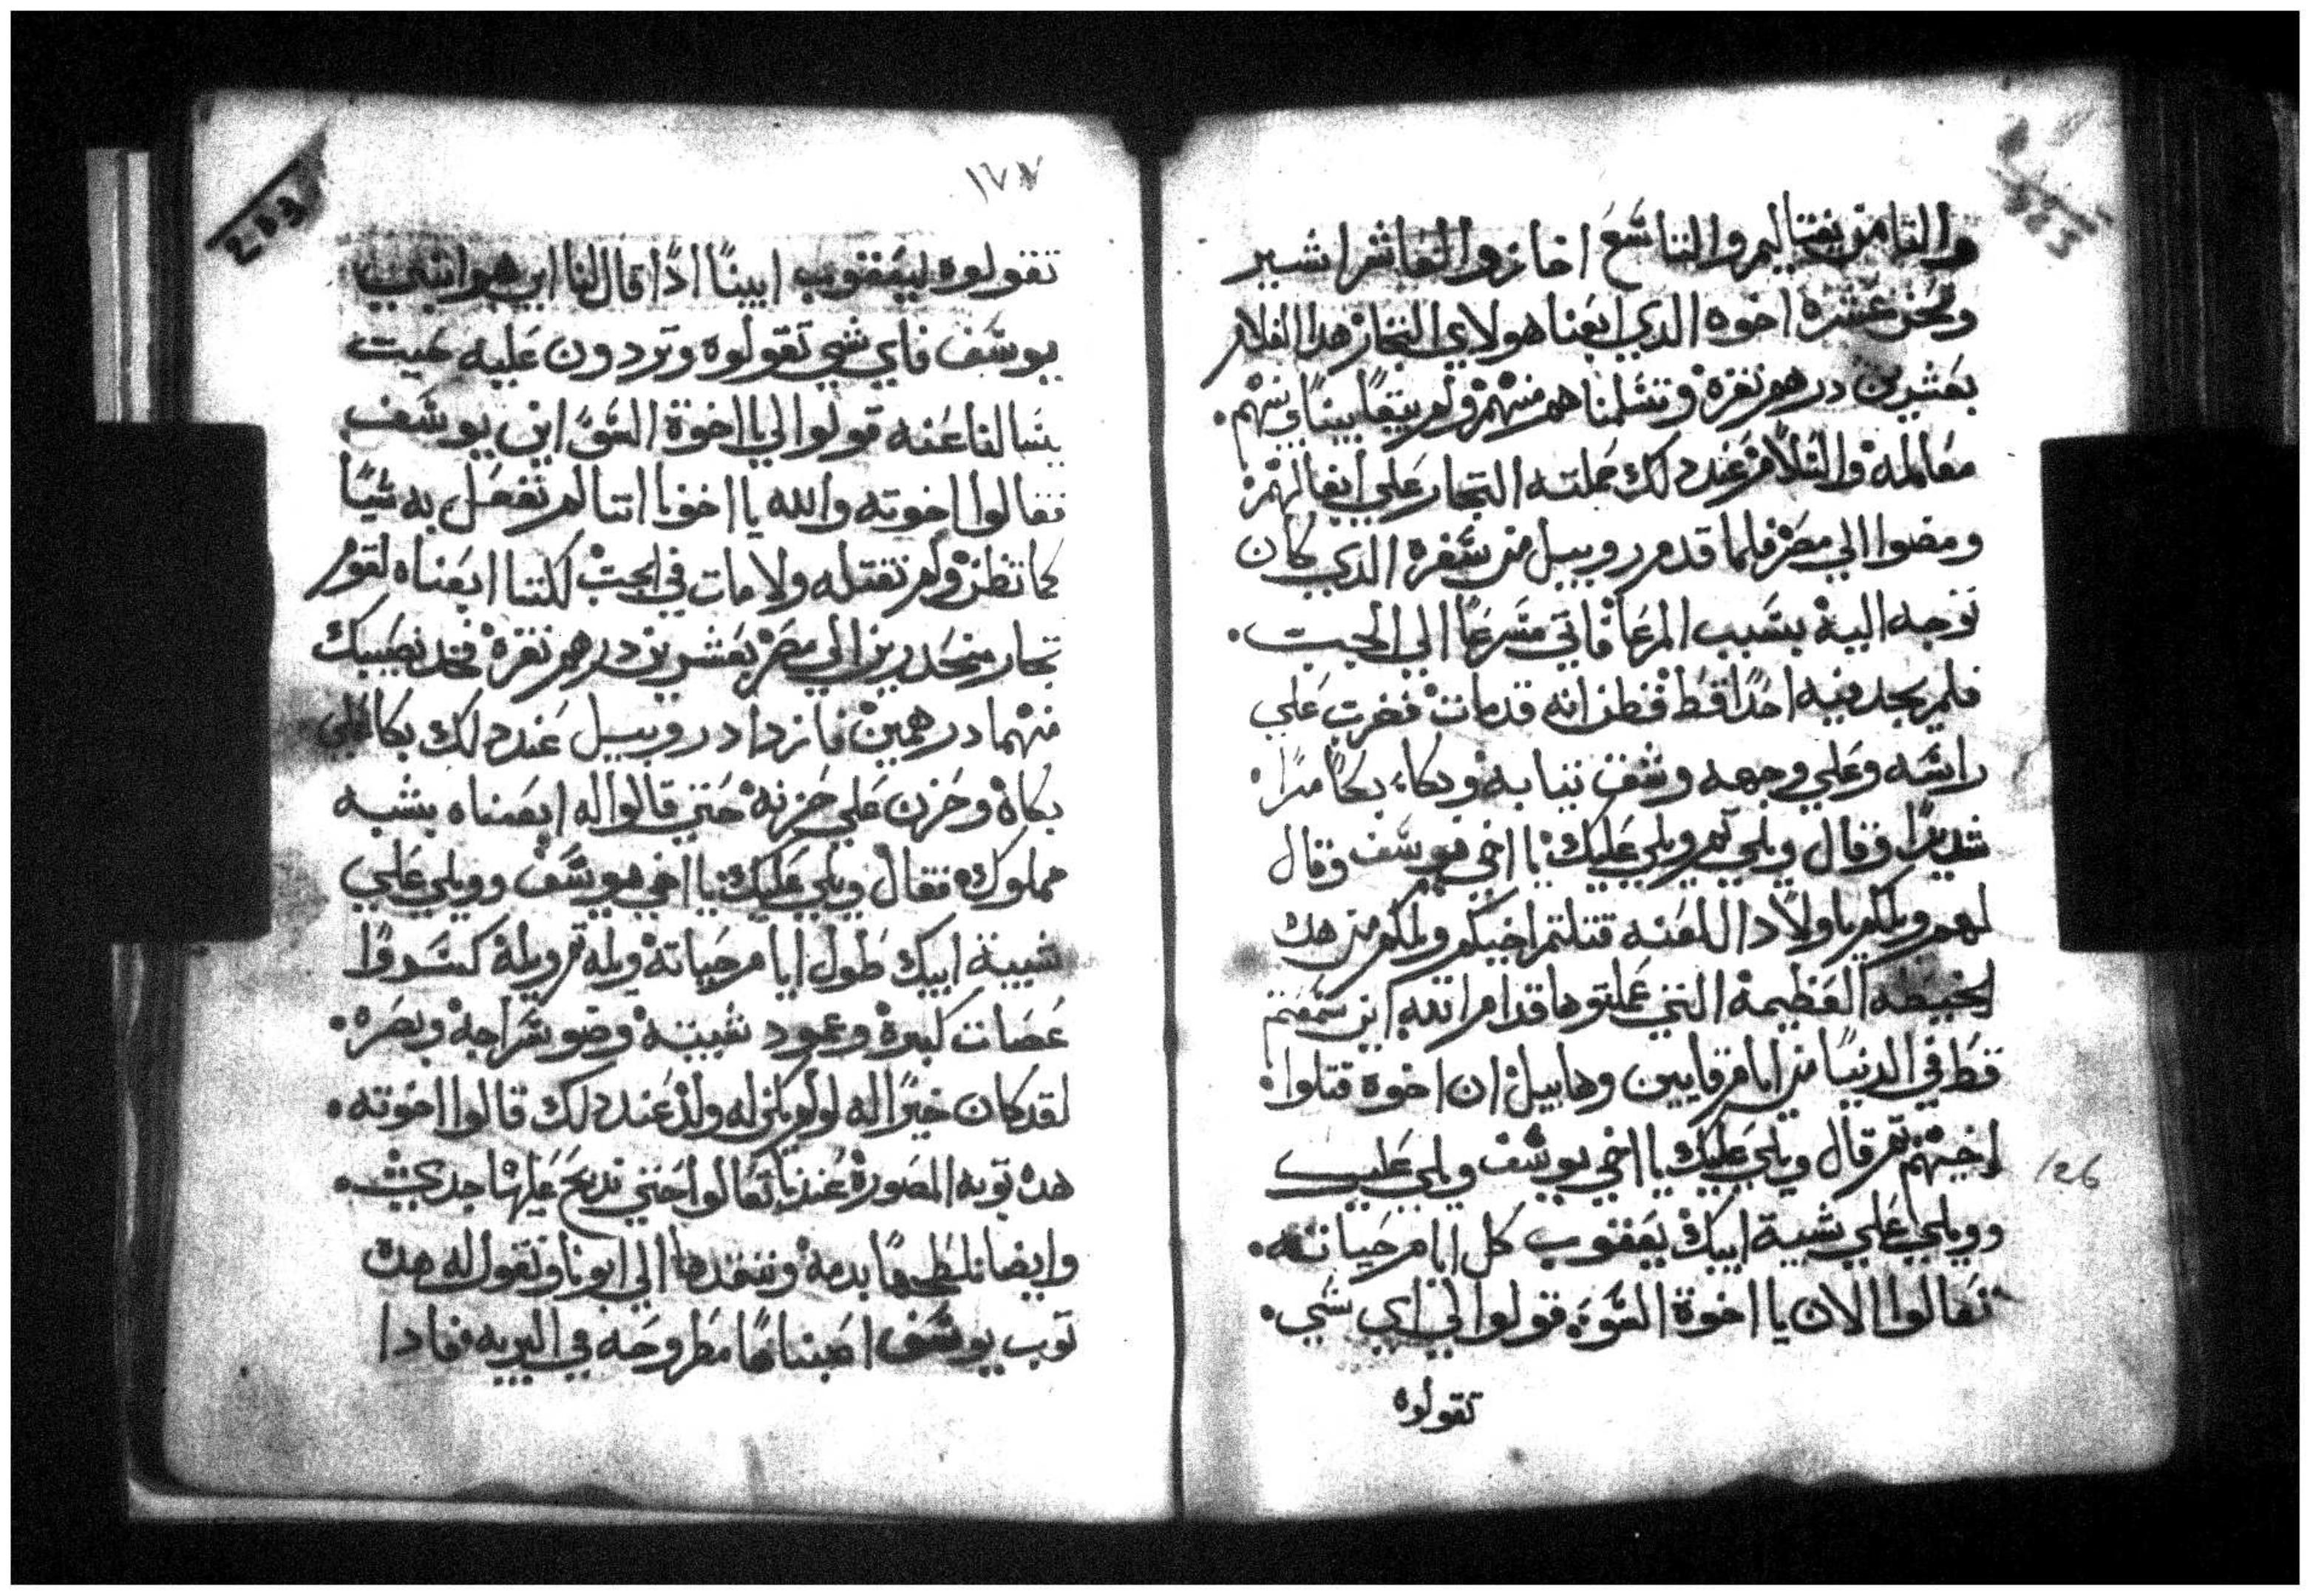 والتامن نفتاليم والتاسع اخازر والعاشر اشير
ونحن عشرة اخوه الدي ابعنا هولاي التجار هدا الغلام
بعشرين درهم نقرة وتسلمناهم منهم ولم يبقا بيننا وبينهم
معامله والسلام عند دلك حملته التجار علي ابغالهم
ومضوا الي مصر فلما قدم روبيل من سفره الدي كان
توجه اليه بسبب المرعا فاتي مسرعا الي الجب
فلم يجد فيه احدا قط فظن انه قد مات فخرت علي
راسه وعلي وجهه وشق تيابه وبكاء بكا مرا
شديدا وقال ويلي تم ويلي عليك يا اخي يوسف وقال
لهم ويلكم ياولاد اللعنه قتلتم اخيكم ويلكم من هده
الخطيه العظيمة التي عملتوها قدام الله اين سمعتم
قط في الدنيا من ايام قايين وهابيل ان اخوة قتلوا
اخيهم تم قال ويلي عليك يا اخي يوسف ويلي عليك
وويلي علي شيبة ابيك يعقوب كل ايام حياته
تعالوا الان يا اخوة السوء قولوا لي اي شي
تقولوه
126
١٧٧
تقولوه ليعقوب ابينا ادا قال لنا اين هو ابني
يوسف فاي شي تقولوه وتردون عليه حيت
يسالنا عنه قولوا لي يا اخوة السو اين يوسف
فقالوا اخوته والله يا اخونا اننا لم نفعل به شيا
كما تظن ولم نقتله ولا مات في الجب لكننا ابعناه لقوم
تجار منحدرين الي مصر بعشرين درهم نقرة فخد نصيبك
منهما درهمين فازداد روبيل عند دلك بكا علي
بكاه وحزن علي حزنه حتي قالوا له ابعناه بشبه
مملوك فقال ويلي عليك يا اخي يوسف وويلي علي
شيبة ابيك طول ايام حياته ويله تم ويله كسروا
عصات كبره وعمود شيبته وضو سراجه وبصره
لقد كان خيرا له لو لم يكن له ولد عند دلك قالوا اخوته
هده توبه المصورة عندنا تعالوا حتي ندبح عليها جدي
وايضا نلطخها بدمه وننفدها الي ابونا ونقول له هده
توب يوسف اصبناها مطروحه في البريه فادا